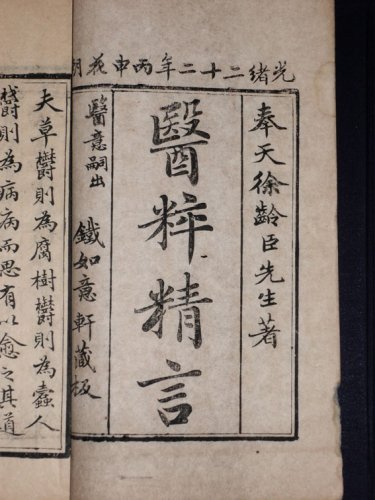 光緒二十二年丙申花月
奉天徐齡臣先生著
醫粹精言
醫意嗣出 鐵如意軒藏板
夫草欝則為腐樹欝則為蠹人
欝則為病病而思有以愈之其道